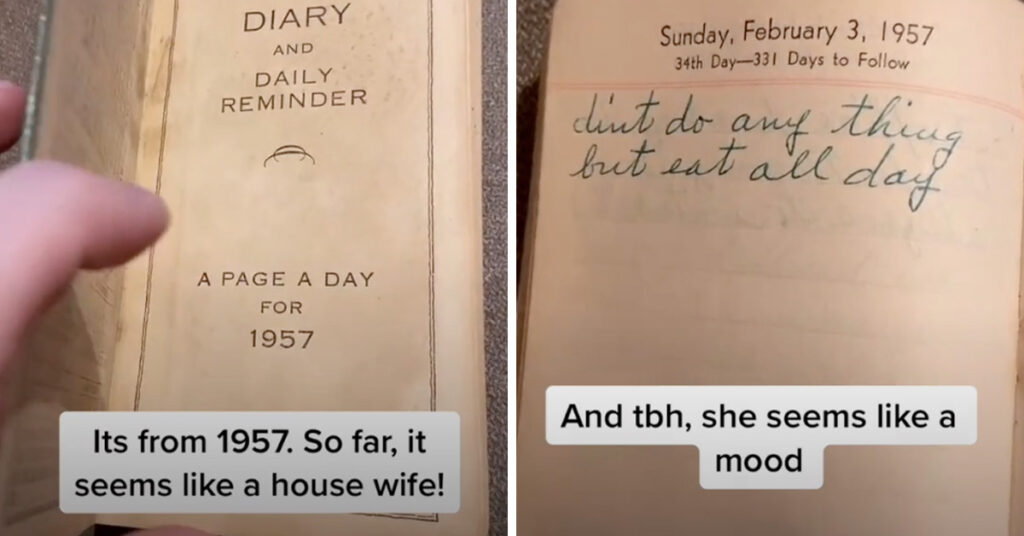 DIARY
AND
DAILY
REMINDER
A PAGE A DAY
FOR
1957
Its from 1957. So far, it
seems like a house wife!
Sunday, February 3, 1957
34th Day—331 Days to Follow
din't do any thing
but eat all day
And tbh, she seems like a
mood